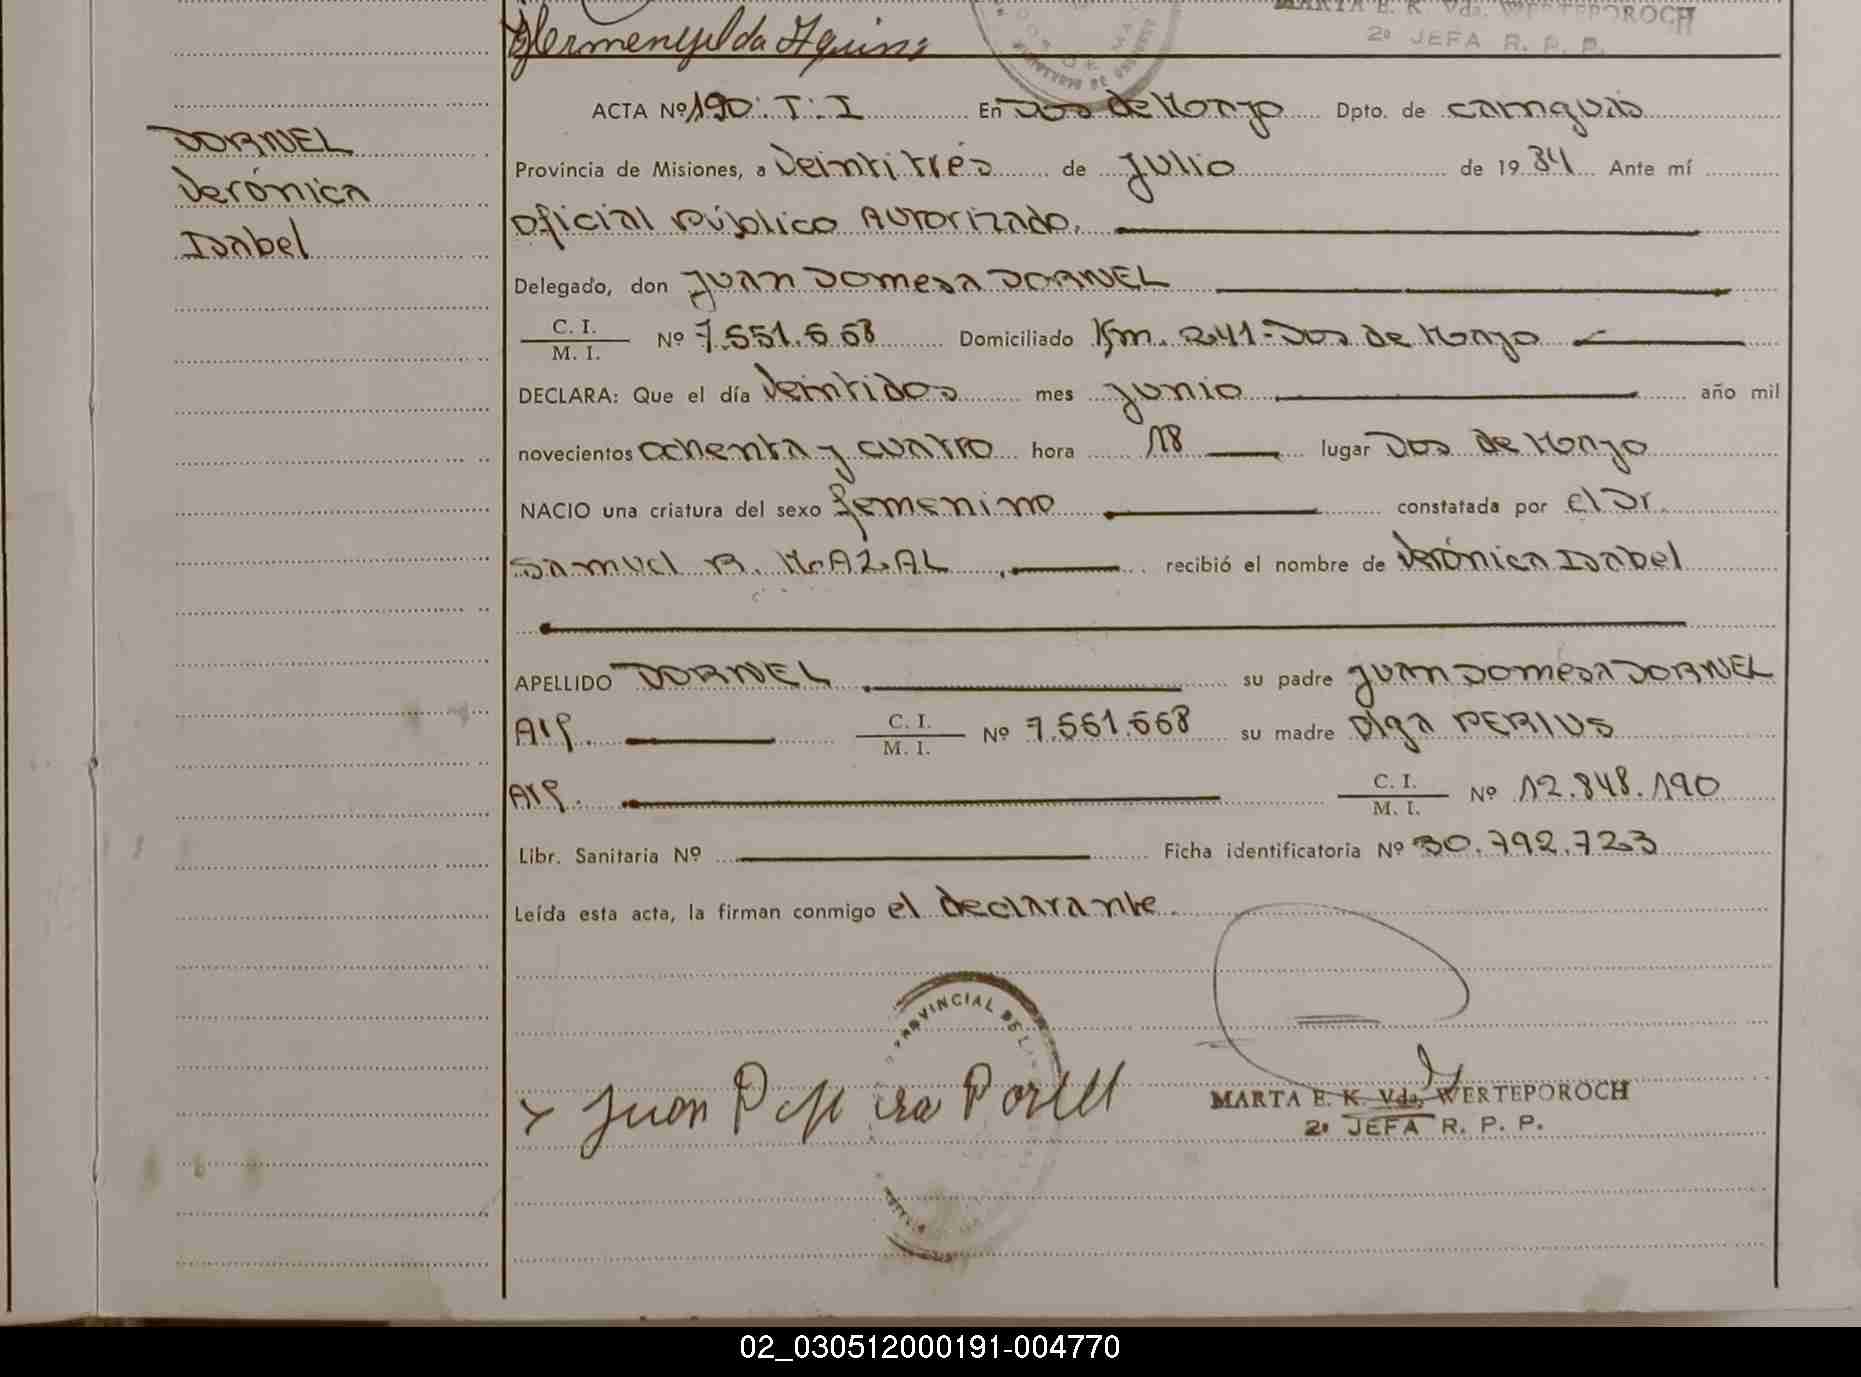 Hermenegilda Aquino
MARTA E. K. Vda. WERTEPOROCH
2º JEFA R. P. P.
DORNEL
Verónica
Isabel
ACTA Nº 190: T: I En Dos de Mayo Dpto. de Cainguás
Provincia de Misiones, a Veintitrés de Julio de 1984 Ante mí
Oficial Público Autorizado.
Delegado, don Juan Domesa DORNEL
C. I. / M. I. Nº 7.551.568 Domiciliado Km. 241-Dos de Mayo
DECLARA: Que el día Veintidos mes junio año mil
novecientos ochenta y cuatro hora 18 lugar Dos de Mayo
NACIO una criatura del sexo femenino constatada por el Dr.
Samuel B. MAZAL recibió el nombre de Verónica Isabel
APELLIDO DORNEL su padre Juan Domesa DORNEL
Arg. C. I. / M. I. Nº 7.551.568 su madre Olga PERIUS
Arg. C. I. / M. I. Nº 12.848.190
Libr. Sanitaria Nº Ficha identificatoria Nº 30.792.723
Leída esta acta, la firman conmigo el declarante.
PROVINCIAL DE L
Juan
MARTA E. K. Vda. WERTEPOROCH
2º JEFA R. P. P.
02_030512000191-004770